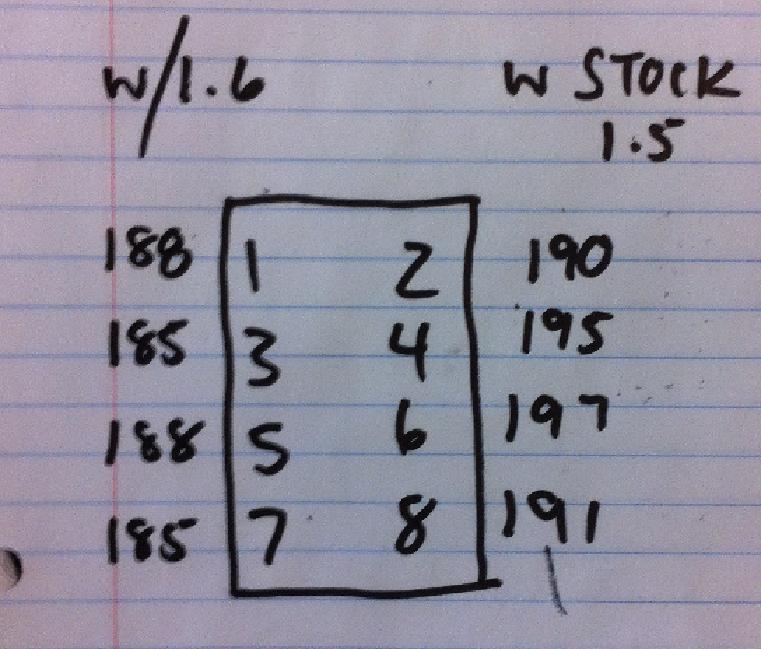 W/1.6 W STOCK
1.5
188 1 2 190
185 3 4 195
188 5 6 197
185 7 8 191